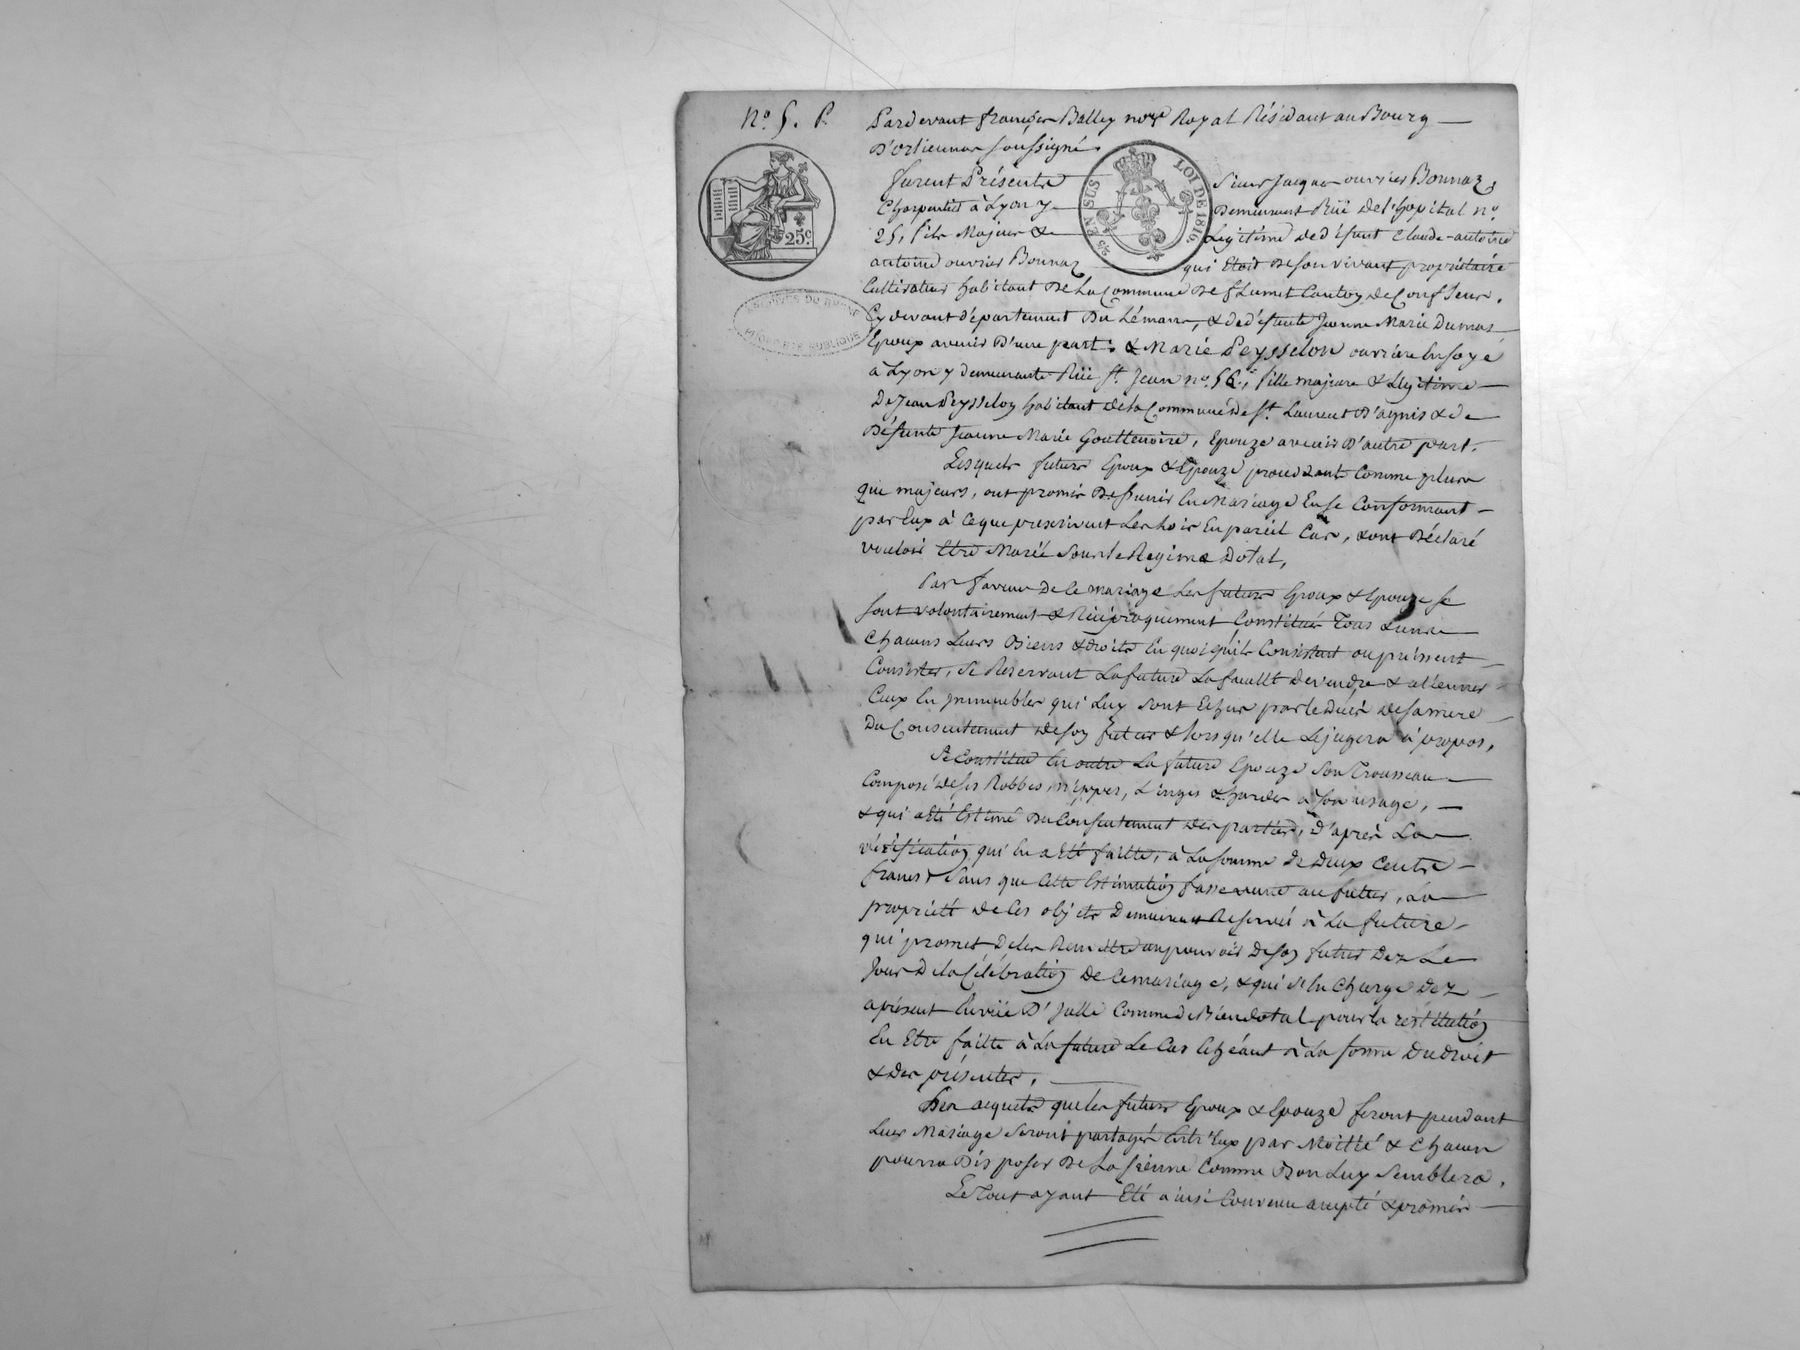 N.o 5. P.
Pardevant françois Balley nore Royal Résidant au Bourg
D'orlienas soussigné.
25c.
25 EN SUS
LOI DE 1816
furent Présents Sieur Jacques ouvrier Bonnaz,
Charpentier à Lyon y Demeurant Rüe de l'hopital no.
25, fils Majeur & Légitime de défunt Claude-antoine
antoine ouvrier Bonnaz qui Etoit De son vivant propriétaire
Cultivateur habitant De La Commune De flumet Canton de Conflens,
Cy devant département Du Lémans, & de défunte Jeanne Marie Dumas
Epoux avenir D'une part; & Marie Peysselon ouvrière En soye
à Lyon y demeurante Rüe St. Jean no. 56, fille majeure & Légitime
De Jean Peysselon habitant de la Commune de St. Laurent D'agnis & de
Défunte Jeanne Marie Gouttenoire, Epouze avenir D'autre part.
Lesquels futurs Epoux & Epouze procédant Comme plus
que majeurs, ont promis De s'unir En Mariage En se Conformant
par Eux à Ce que prescrivent Les Loix En pareil Cas, & ont Déclaré
vouloir Etre Marié sous le Regime Dotal,
Par faveur De Ce mariage Les futurs Epoux & Epouze se
sont volontairement & Réciproquement Constitués Tous & uns
Chacuns Leurs Biens & droits En quoi qu'ils Consistent ou puissent
Consister, se Reservant La future La facullté De vendre & aliener
Ceux En Immeubles qui Luy sont Echus par le Decès De sa mere
Du Consentement De son futur & lorsqu'elle Le jugera à propos,
Se Constitue En outre La future Epouze son Trousseau
Composé de ses Robbes, nippes, Linges & hardes à son usage,
& qui a Eté Estimé Du Consentement Des parties, D'après La
vérification qui En a Eté faitte, à La somme De Deux Cents
francs sans que Cette Estimation fasse vente au futur, La
propriété de Ces objets Demeurant Reservée à La future
qui promet De les Remettre au pouvoir De son futur Dez Le
Jour De la Célébration De Ce mariage, & qui s'En Charge Dez
aprésent En vüe D'Icelle Comme De Bien dotal pour la restitution
En Etre faitte à La future Le Cas Echéant à La forme Du Droit
& Des présentes.
Les acquets que les futurs Epoux & Epouze feront pendant
Leur Mariage seront partagés Entr'Eux par Moitié & Chacun
pourra Disposer De La sienne Comme Bon Luy semblera.
Le Tout ayant Eté ainsi Convenu accepté & promis